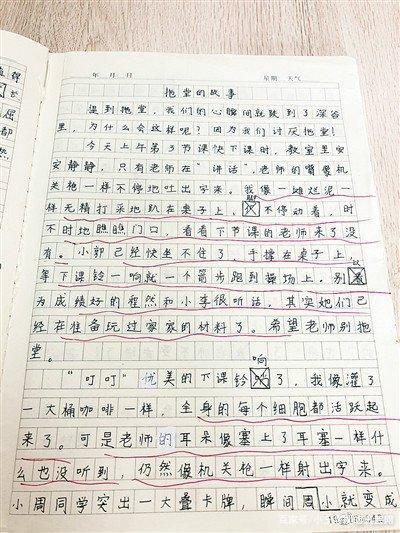 年 月 日 星期 天气
拖堂的故事
提到拖堂，我们的心瞬间就跌到了深谷
里，为什么会这样呢？因为我们讨厌拖堂！
今天上午第3节课快下课时，教室里安
安静静，只有老师在“讲话”，老师的嘴像机
关枪一样不停地吐出字来。我像一摊烂泥一
样无精打采地趴在桌子上，脚不停动着，时
不时地瞧瞧门口，看看下节课的老师来了没
有。小郭已经快坐不住了，手撑在桌子上，
等下课铃一响就一个箭步跑到操场上。别
为成绩好的程然和小李很听话，其实她们已
经在准备玩过家家的材料了。希望老师别拖
堂。
“叮叮”优美的下课铃响了，我像灌了
一大桶咖啡一样，全身的每个细胞都活跃起
来了。可是老师的耳朵像塞上了耳塞一样什
么也没听到，仍然像机关枪一样射出字来。
小周同学突出一大叠卡牌，瞬间周小就变成